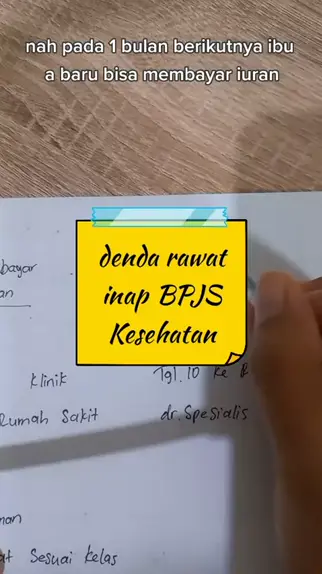 nah pada 1 bulan berikutnya ibu
a baru bisa membayar iuran
denda rawat
inap BPJS
Kesehatan
bayar
an
Klinik Tgl. 10 Ke
Rumah Sakit dr. Spesialis
nan
at Sesuai Kelas